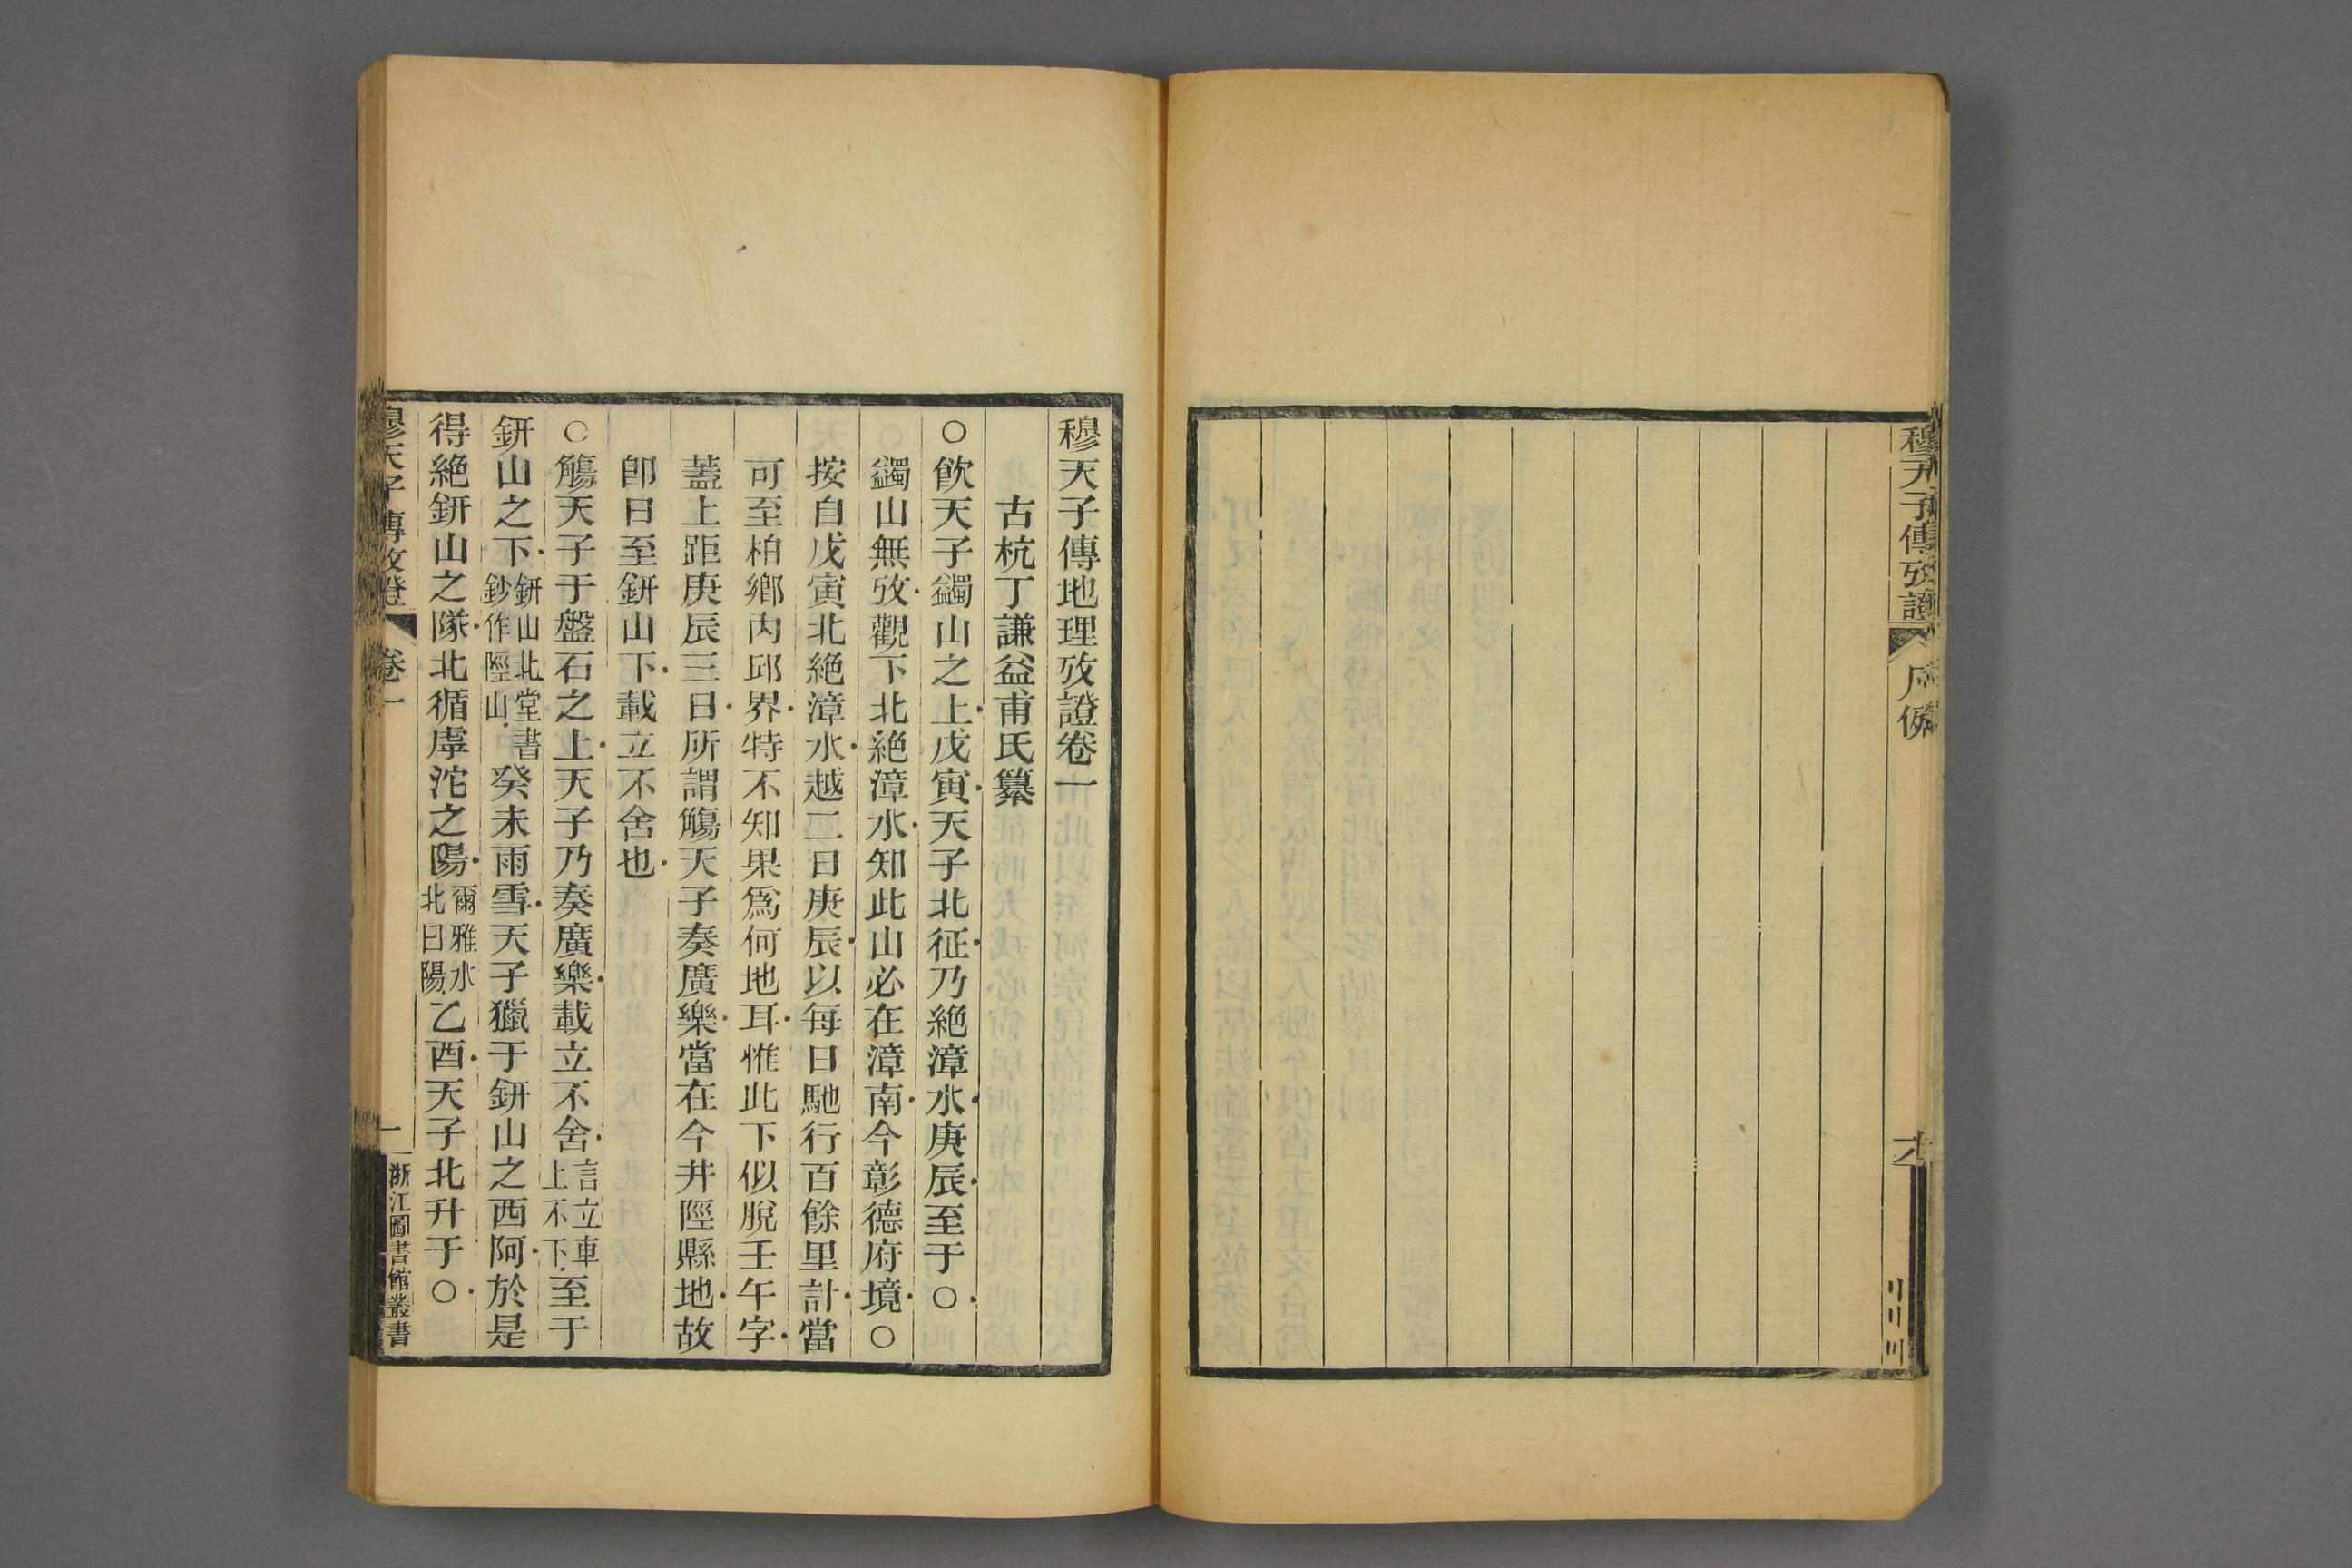 穆天子傳攷證
凡例
穆天子傳地理攷證卷一
古杭丁謙益甫氏纂
○飲天子蠲山之上.戊寅.天子北征.乃絶漳水.庚辰.至于○.
蠲山無攷.觀下北絶漳水.知此山必在漳南.今彰德府境.○
按自戊寅北絶漳水.越二日庚辰.以每日馳行百餘里計.當
可至柏鄉內邱界.特不知果爲何地耳.惟此下似脫壬午字.
蓋上距庚辰三日.所謂觴天子奏廣樂.當在今井陘縣地.故
卽日至鈃山下.載立不舍也.
○觴天子于盤石之上.天子乃奏廣樂.載立不舍.言立車
上不下.至于
鈃山之下.鈃山北堂書
鈔作陘山.癸未雨雪.天子獵于鈃山之西阿.於是
得絶鈃山之隊.北循虖沱之陽.爾雅水
北曰陽.乙酉.天子北升于○.
穆天子傳攷證
卷一
一
浙江圖書館叢書